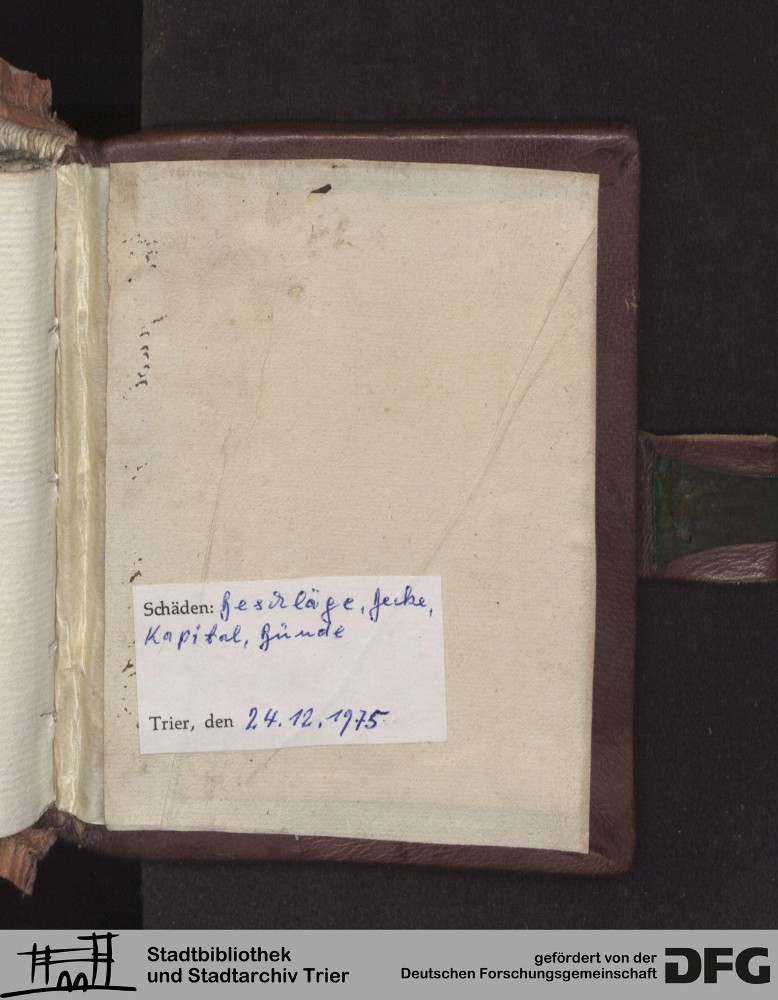 Schäden: Beschläge, Decke,
Kapital, Bünde
Trier, den 24.12.1975
Stadtbibliothek
und Stadtarchiv Trier
gefördert von der
Deutschen Forschungsgemeinschaft
DFG